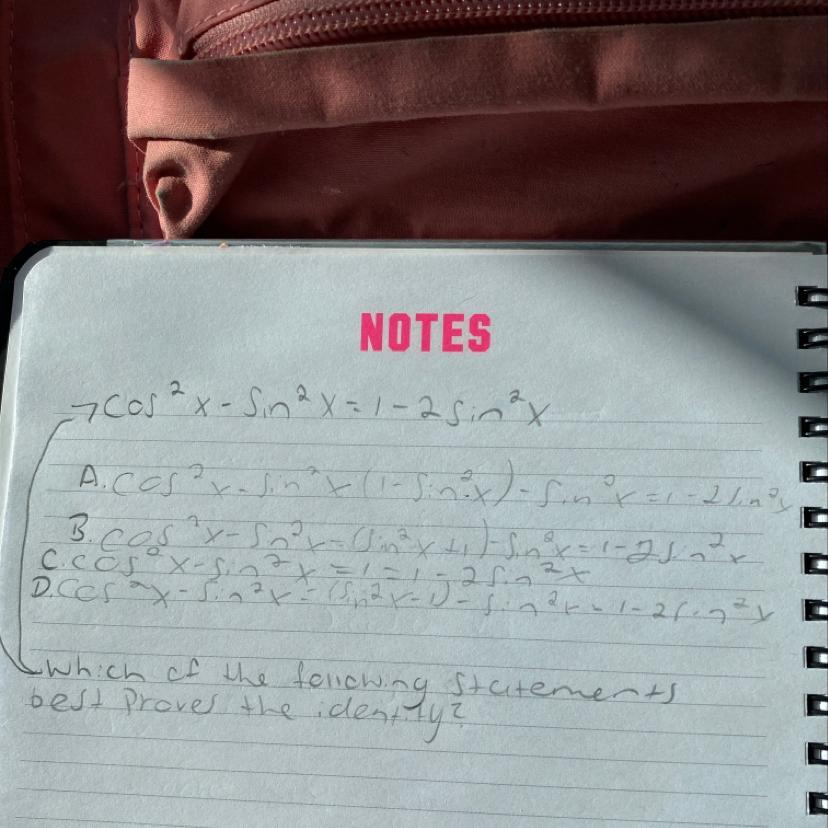 NOTES
→cos²x-sin²x=1-2sin²x
A.cos²x-sin²x(1-sin²x)-sin²x=1-2sin²x
B.cos²x-sin²x=(sin²x+1)-sin²x=1-2sin²x
C.cos²x-sin²x=1=1-2sin²x
D.cos²x-sin²x=(sin²x-1)-sin²x=1-2sin²x
which of the following statements
best proves the identity?